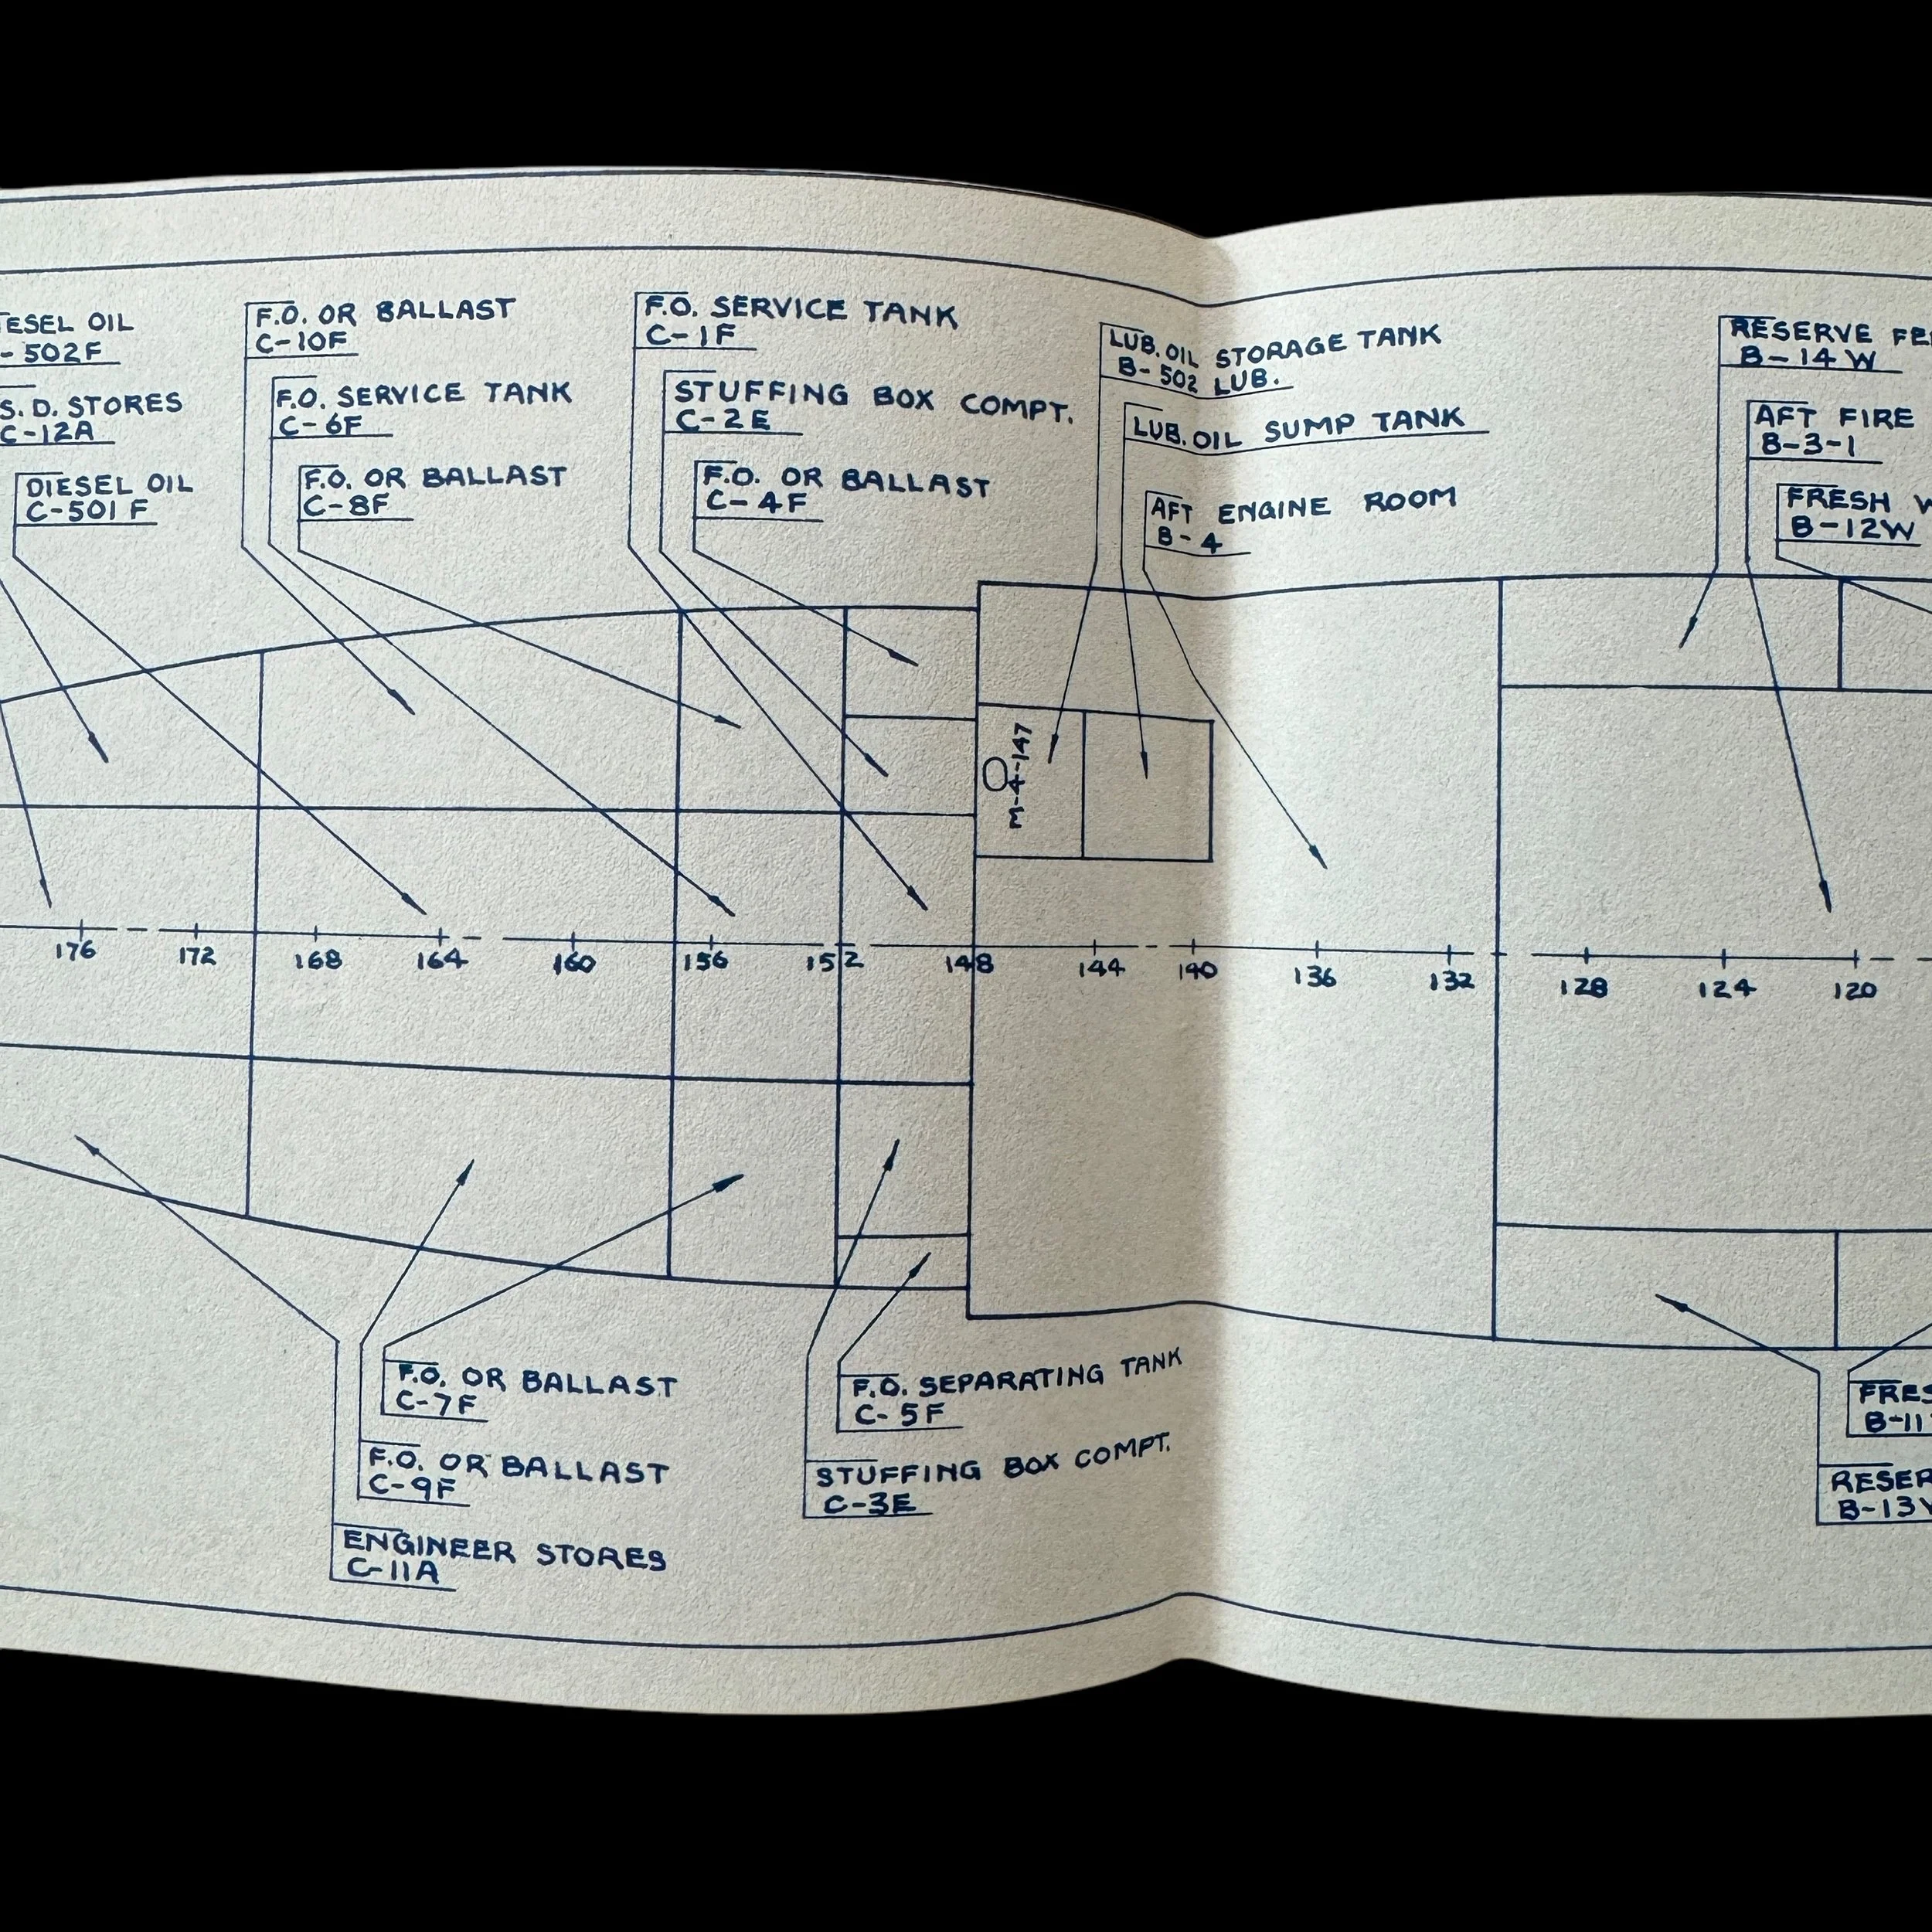 ESEL OIL
-502F
S.D. STORES
C-12A
DIESEL OIL
C-501F
F.O. OR BALLAST
C-10F
F.O. SERVICE TANK
C-6F
F.O. OR BALLAST
C-8F
F.O. SERVICE TANK
C-1F
STUFFING BOX COMPT.
C-2E
F.O. OR BALLAST
C-4F
LUB. OIL STORAGE TANK
B-502 LUB.
LUB. OIL SUMP TANK
AFT ENGINE ROOM
B-4
RESERVE FE
B-14W
AFT FIRE
B-3-1
FRESH W
B-12W
M-4-147
176 172 168 164 160 156 152 148 144 140 136 132 128 124 120
F.O. OR BALLAST
C-7F
F.O. OR BALLAST
C-9F
ENGINEER STORES
C-11A
F.O. SEPARATING TANK
C-5F
STUFFING BOX COMPT.
C-3E
FRES
B-11
RESER
B-13